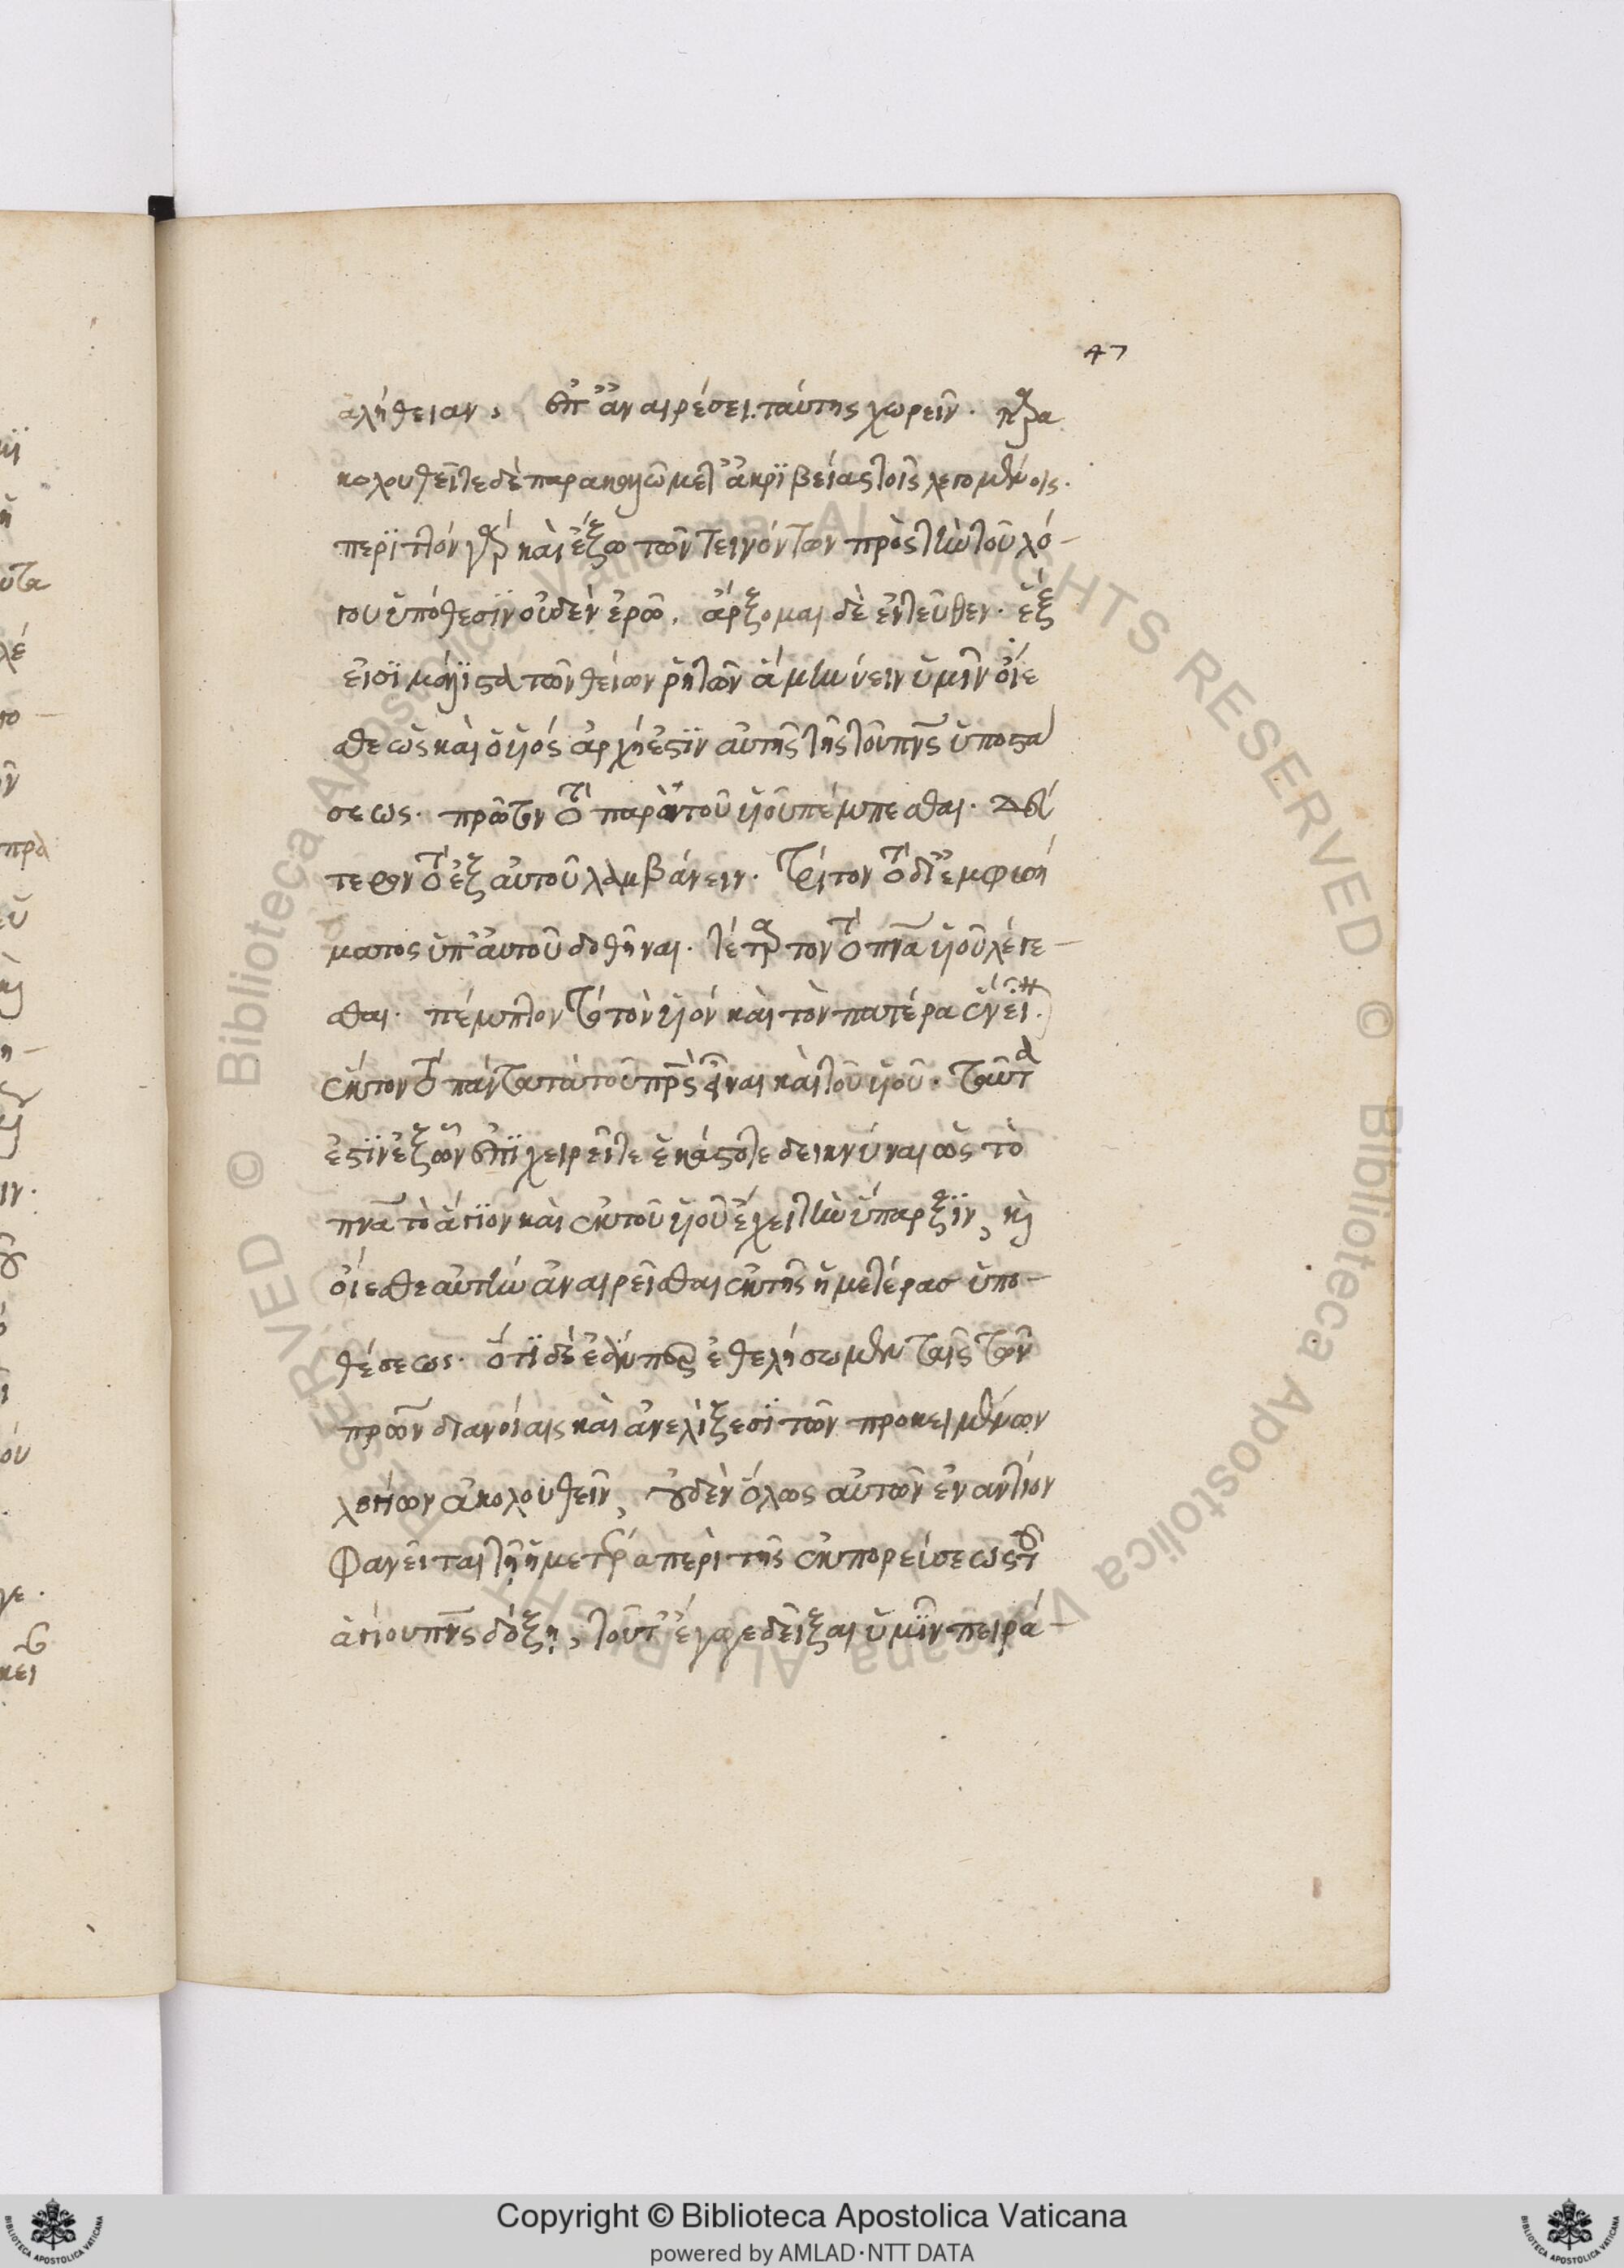 47
ἀλήθειαν, ἐπ' ἀναιρέσει ταύτης χωρεῖν. παρα
κολουθεῖτε δὲ παρακαλῶ μετ' ἀκριβείας τοῖς λεγομένοις.
περιττὸν γὰρ καὶ ἔξω τῶν τεινόντων πρὸς τὴν τοῦ λό-
γου ὑπόθεσιν οὐδὲν ἐρῶ. ἄρξομαι δὲ ἐντεῦθεν. ἓξ
εἰσὶ μάλιστα τῶν θείων ῥητῶν ἃ μὴν ύειν ὑμῖν οἴε
σθε ὡς καὶ ὁ υἱός ἀρχή ἐστιν αὐτῆς τῆς τοῦ πνς ὑποστά
σεως. πρῶτον ὅτι παρὰ τοῦ υἱοῦ πέμπεσθαι. δεύ
τερον ὅτι ἐξ αὐτοῦ λαμβάνειν. τρίτον ὅτι δι' ἐμφυσή
ματος ὑπ' αὐτοῦ δοθῆναι. τέταρτον ὅτι πνα υἱοῦ λέγε-
σθαι. πέμπτον τὸ τὸν υἱόν καὶ τὸν πατέρα ἓν εἶ.
ἕκτον τὸ πάντα τὰ τοῦ πρς εἶναι καὶ τοῦ υἱοῦ. ταῦτα
ἐστὶν ἐξ ὧν ἐπιχειρεῖτε ἑκάστοτε δεικνύναι ὡς τὸ
πνα τὸ ἅγιον καὶ ἐκ τοῦ υἱοῦ ἔχει τὴν ὕπαρξιν, καὶ
οἴεσθε αὐτὴν ἀναιρεῖσθαι ἐκ τῆς ἡμετέρας ὑπο-
θέσεως. ὅτι δὲ ἐάν πως ἐθελήσωμεν ταῖς τῶν
πρων διανοίαις καὶ ἀνελίξεσι τῶν προκειμένων
λογίων ἀκολουθεῖν, οὐδὲν ὅλως αὐτῶν ἐναντίον
φανεῖται τῇ ἡμετέρα περὶ τῆς ἐκπορεύσεως τοῦ
ἁγίου πνς δόξῃ, τοῦτ' ἔγωγε δεῖξαι ὑμῖν πειρά-
Copyright © Biblioteca Apostolica Vaticana
powered by AMLAD·NTT DATA